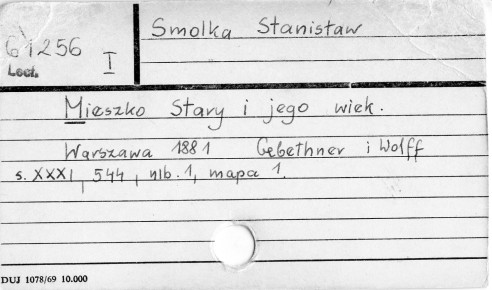 Smolka Stanisław
61256
Lect.
I
Mieszko Stary i jego wiek.
Warszawa 1881 Gebethner i Wolff
s. XXXI, 544, nlb. 1, mapa 1.
DUJ 1078/69 10.000